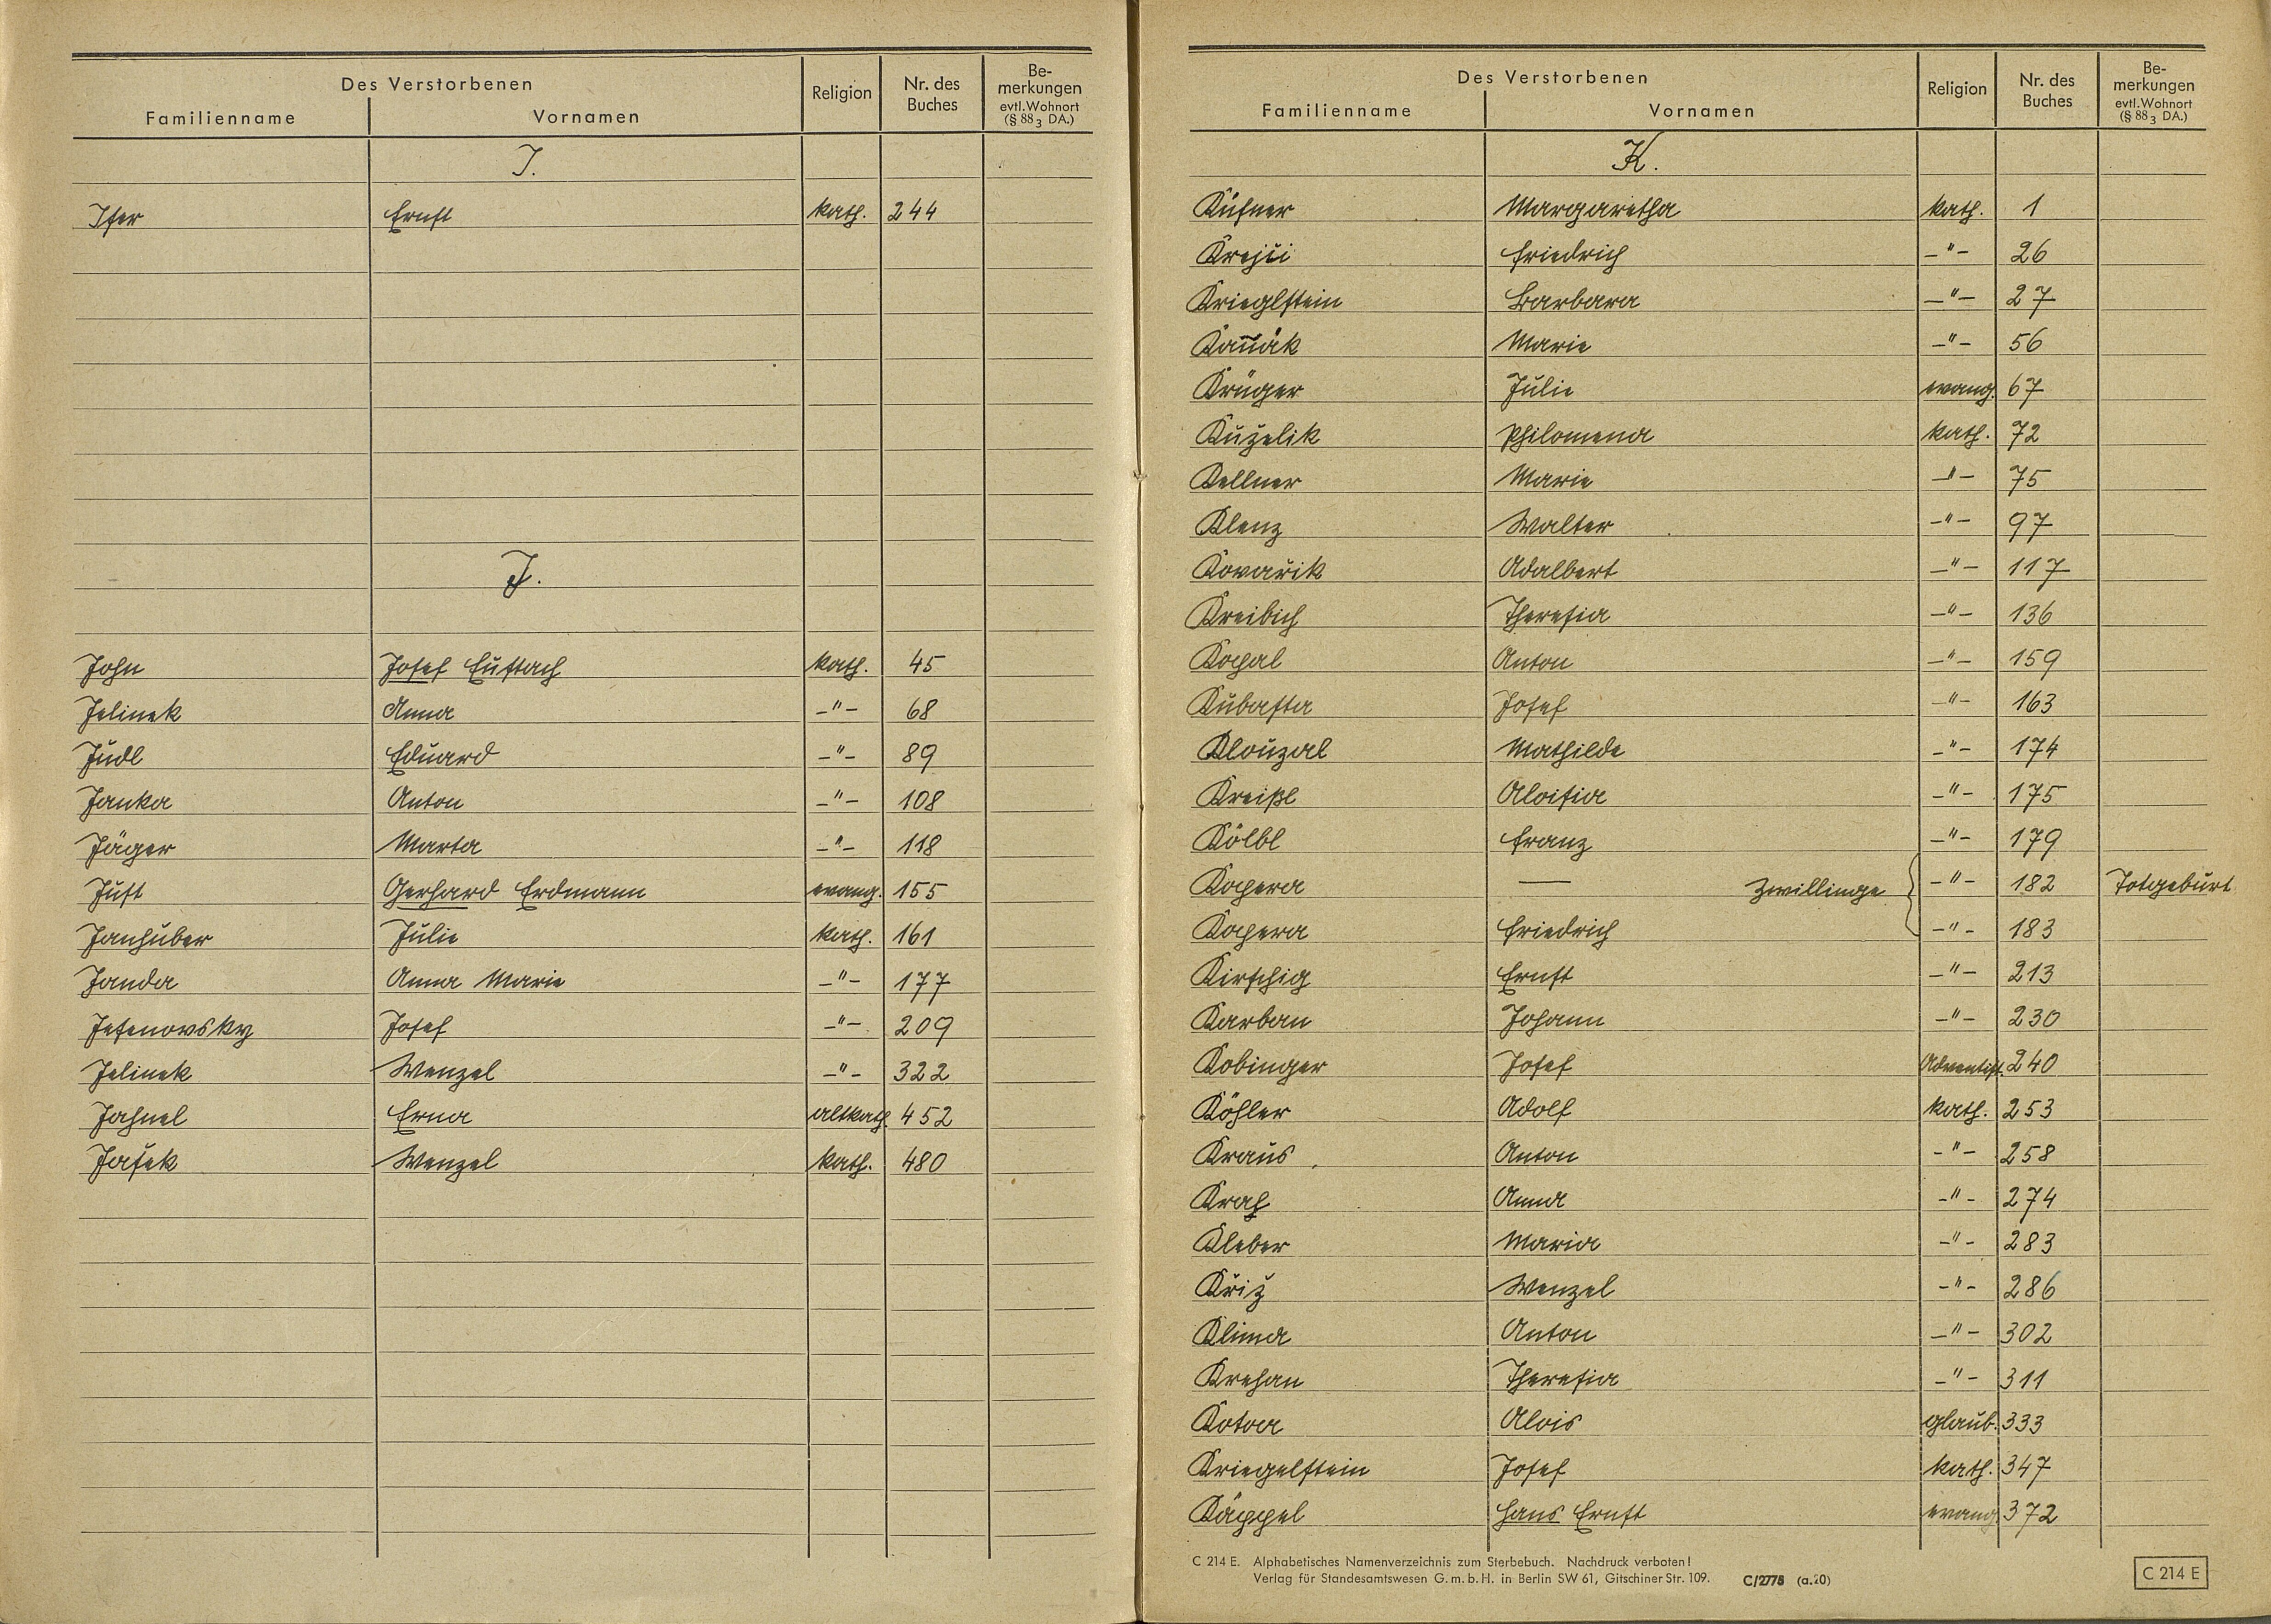 Des Verstorbenen
Familienname Vornamen Religion Nr. des Buches Be-merkungen evtl. Wohnort (§ 88 3 DA.)
I.
Iser Ernst kath. 244
J.
John Josef Eustach kath. 45
Jelinek Anna -"- 68
Judl Eduard -"- 89
Janka Anton -"- 108
Jäger Marta -"- 118
Just Gerhard Erdmann evang. 155
Janhuber Julie kath. 161
Janda Anna Marie -"- 177
Jesenovsky Josef -"- 209
Jelinek Wenzel -"- 322
Jahnel Erna altkath. 452
Jašek Wenzel kath. 480
Des Verstorbenen
Familienname Vornamen Religion Nr. des Buches Be-merkungen evtl. Wohnort (§ 88 3 DA.)
K.
Küfner Margaretha kath. 1
Krejči Friedrich -"- 26
Krieglstein Barbara -"- 27
Marie -"- 56
Krüger Julie evang. 67
Kuželik Philomena kath. 72
Kellner Marie -"- 75
Klenz Walter -"- 97
Kovařik Adalbert -"- 117
Kreibich Theresia -"- 136
Kopal Anton -"- 159
Kubasta Josef -"- 163
Klouzal Mathilde -"- 174
Kreißl Aloisia -"- 175
Kölbl Franz -"- 179
Kopera — Zwillinge -"- 182 Totgeburt
Kopera Friedrich -"- 183
Kirschig Ernst -"- 213
Karban Johann -"- 230
Kobinger Josef Adventist. 240
Köhler Adolf kath. 253
Kraus Anton -"- 258
Anna -"- 274
Kleber Maria -"- 283
Křiž Wenzel -"- 286
Klima Anton -"- 302
Krehan Theresia -"- 311
Alois glaub. 333
Kriegelstein Josef kath. 347
Käppel Hans Ernst evang. 372
C 214 E. Alphabetisches Namenverzeichnis zum Sterbebuch. Nachdruck verboten!
Verlag für Standesamtswesen G.m.b.H. in Berlin SW 61, Gitschiner Str. 109. C/2775 (a.20)
C 214 E